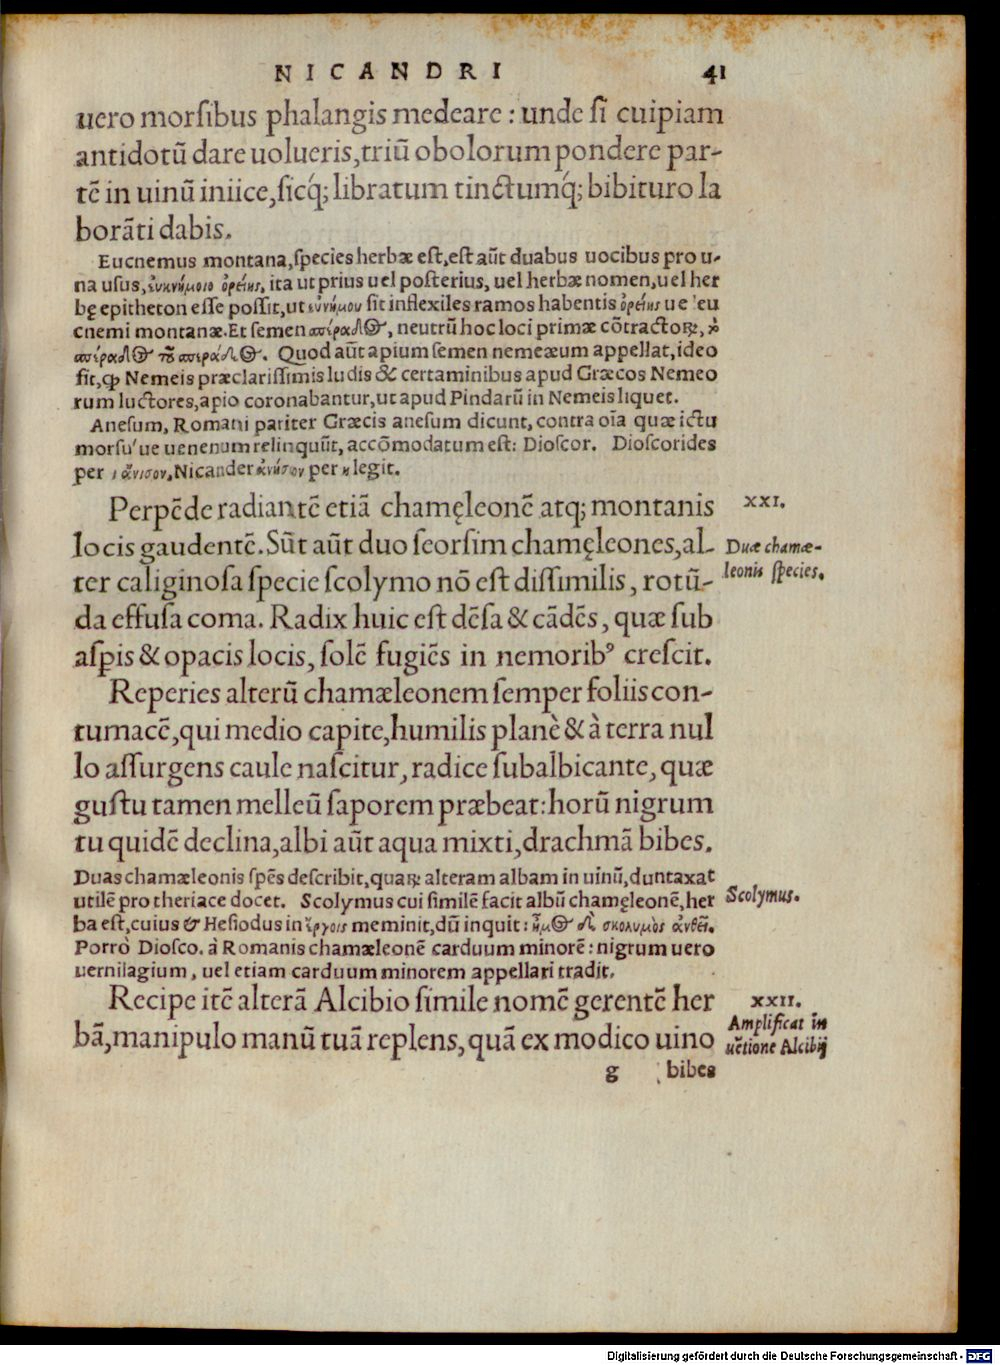 NICANDRI 41
uero morſibus phalangis medeare: unde ſi cuipiam
antidotũ dare uolueris, triũ obolorum pondere par-
tẽ in uinũ iniice, ſicq́; libratum tinctumq́; bibituro la
borãti dabis.
Eucnemus montana, ſpecies herbæ eſt, eſt aũt duabus uocibus pro u-
na uſus, ἐυκνήμοιο ὀρείης, ita ut prius uel poſterius, uel herbæ nomen, uel her
bę epitheton eſſe poſſit, ut ſit inflexiles ramos habentis ὀρείης ue eu
cnemi montanæ. Et ſemen neutrũ hoc loci primæ cõtractoꝝ,
Quod aũt apium ſemen nemeæum appellat, ideo
fit, ꝙ Nemeis præclariſſimis ludis & certaminibus apud Græcos Nemeo
rum luctores, apio coronabantur, ut apud Pindarũ in Nemeis liquet.
Aneſum, Romani pariter Græcis aneſum dicunt, contra oĩa quæ ictu
morſu'ue uenenum relinquũt, accõmodatum eſt: Dioſcor. Dioſcorides
per ι ἄνισον, Nicander ἄνησον per η legit.
Perpẽde radiantẽ etiã chamęleonẽ atq; montanis XXI.
locis gaudentẽ. Sũt aũt duo ſeorſim chamęleones, al- Duæ chamæ-
ter caliginoſa ſpecie ſcolymo nõ eſt diſſimilis, rotũ- leonis ſpecies.
da effuſa coma. Radix huic eſt dẽſa & cãdẽs, quæ ſub
aſpis & opacis locis, ſolẽ fugiẽs in nemoribꝰ creſcit.
Reperies alterũ chamæleonem ſemper foliis con-
tumacẽ, qui medio capite, humilis planè & à terra nul
lo aſſurgens caule naſcitur, radice ſubalbicante, quæ
guſtu tamen melleũ ſaporem præbeat: horũ nigrum
tu quidẽ declina, albi aũt aqua mixti, drachmã bibes.
Duas chamæleonis ſpẽs deſcribit, quaꝝ alteram albam in uinũ, duntaxat
utilẽ pro theriace docet. Scolymus cui ſimilẽ facit albũ chamęleonẽ, her Scolymus.
ba eſt, cuius & Heſiodus in ἔργοις meminit, dũ inquit: ἦμος δὲ σκολυμὸς ἀνθεῖ.
Porrò Dioſco. à Romanis chamæleonẽ carduum minorẽ: nigrum uero
uernilagium, uel etiam carduum minorem appellari tradit.
Recipe itẽ alterã Alcibio ſimile nomẽ gerentẽ her XXII.
bã, manipulo manũ tuã replens, quã ex modico uino Amplificat in
uẽtione Alcibij
g bibes
Digitalisierung gefördert durch die Deutsche Forschungsgemeinschaft - DFG